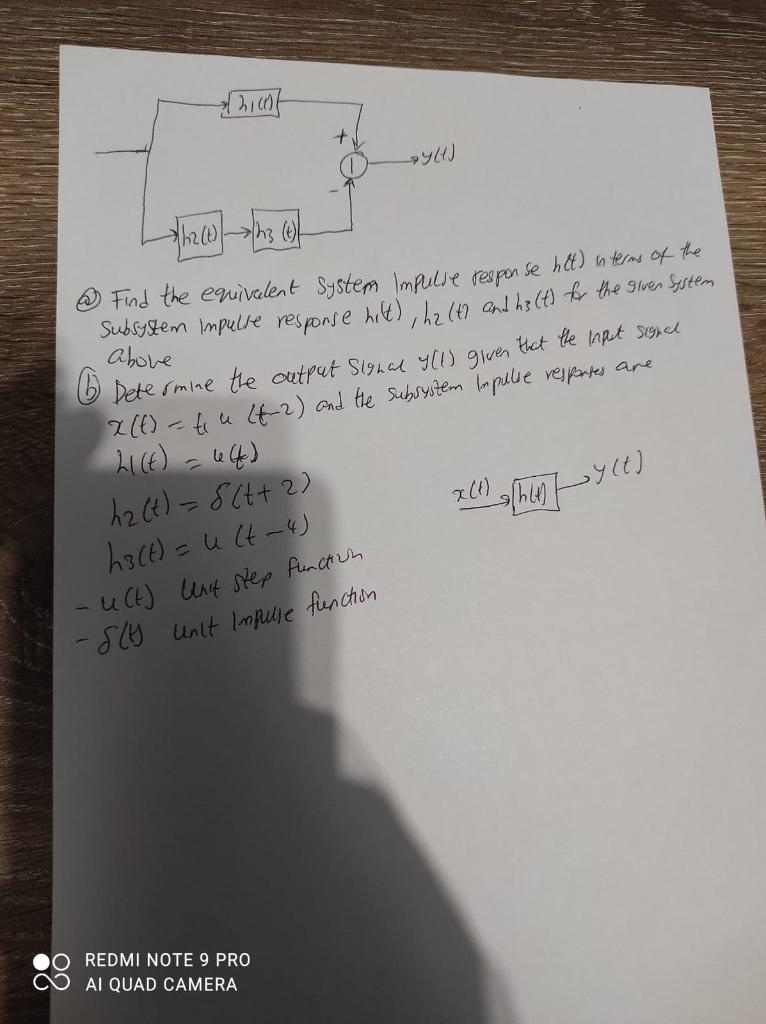 h1(t)
+
y(t)
-
h2(t) h3 (t)
(a) Find the equivalent system Impulse response h(t) in terms of the
Subsystem Impulse response h1(t), h2(t) and h3(t) for the given system
above
(b) Determine the output signal y(t) given that the input signal
x(t) = u (t-2) and the subsystem Impulse responses are
h1(t) = u(t)
h2(t) = δ(t+2)
x(t) h(t) y(t)
h3(t) = u (t-4)
- u(t) Unit step function
- δ(t) unit Impulse function
REDMI NOTE 9 PRO
AI QUAD CAMERA